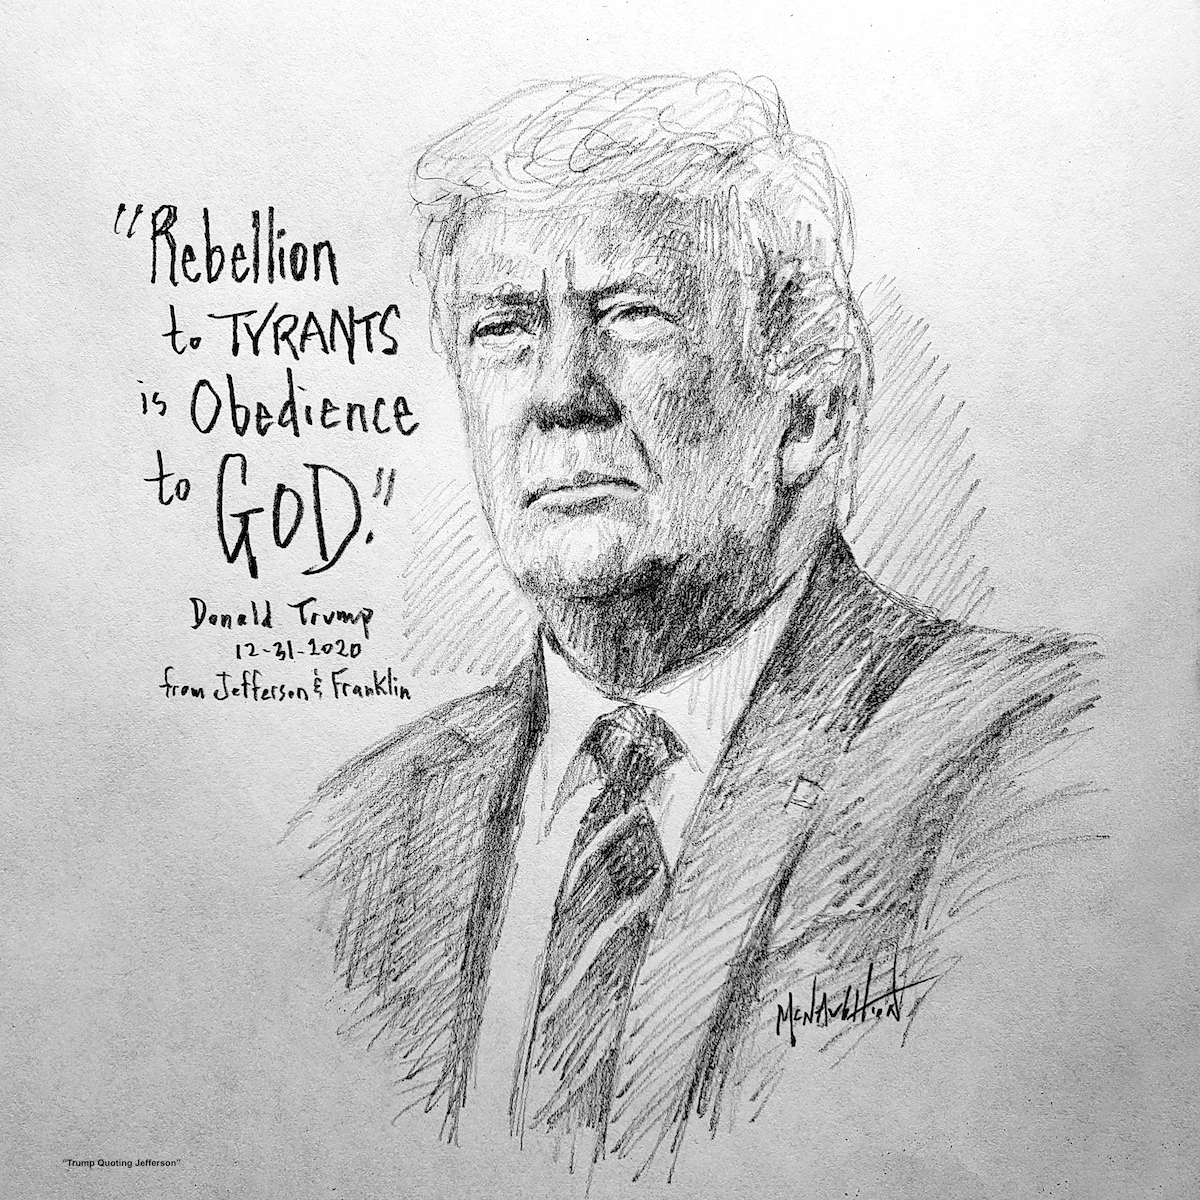 "Rebellion
to TYRANTS
is Obedience
to GOD."
Donald Trump
12-31-2020
from Jefferson & Franklin
McNaughton
"Trump Quoting Jefferson"